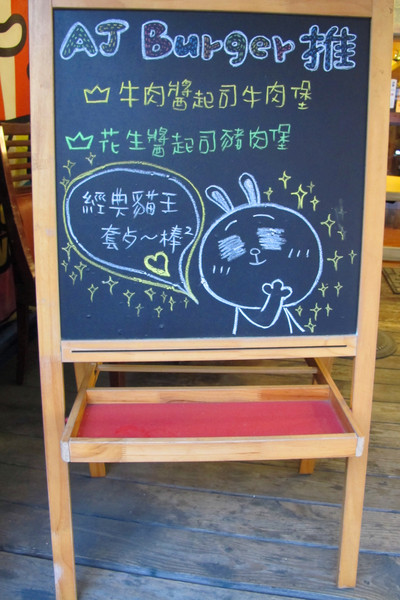 AJ Burger 推
牛肉醬起司牛肉堡
花生醬起司豬肉堡
經典貓王
套卢～棒²